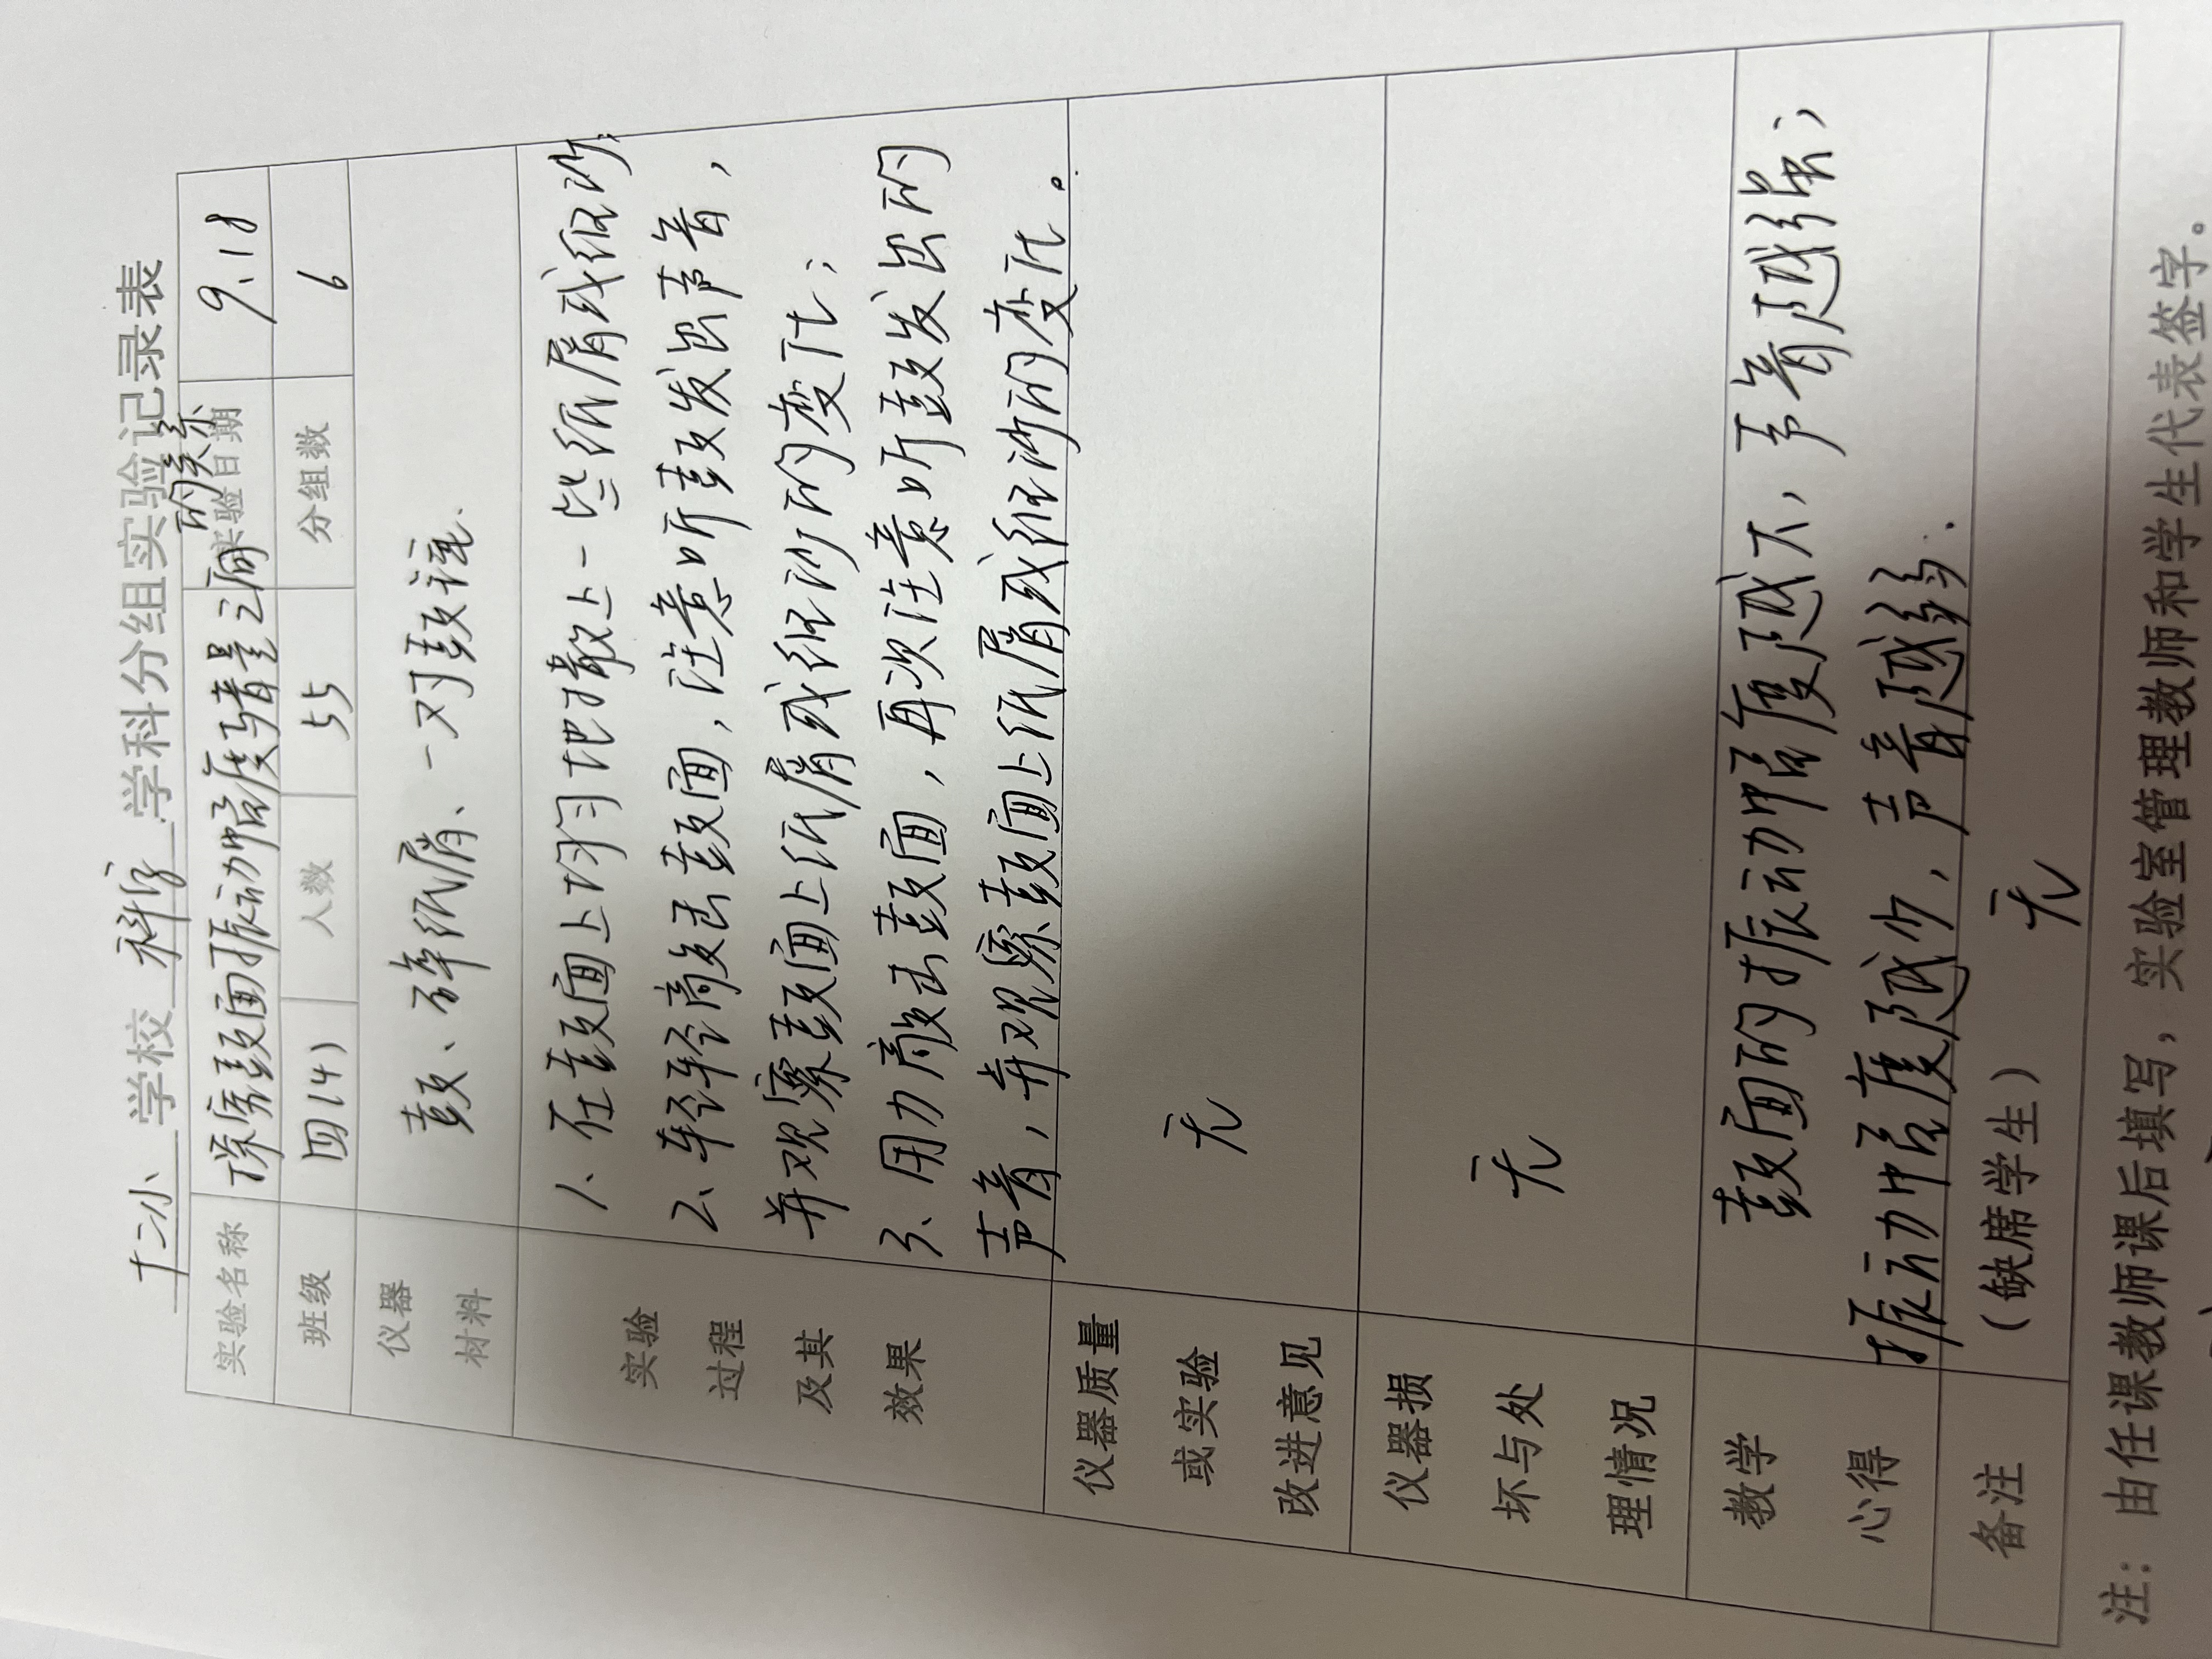 十二小 学校 科学 学科分组实验记录表
实验名称 探究鼓面振动幅度与音量之间的关系 实验日期 9.18
班级 四(4) 人数 55 分组数 6
仪器材料 鼓、碎纸屑、一对鼓
实验过程及其效果
1、在鼓面上均匀地撒上一些纸屑或细沙;
2、轻轻敲击鼓面,注意听鼓发出声音,
并观察鼓面上纸屑或细沙的变化;
3、用力敲击鼓面,再次注意听鼓发出的
声音,并观察鼓面上纸屑或细沙的变化。
仪器质量或实验改进意见 无
仪器损坏与处理情况 无
教学心得
鼓面的振动幅度越大,声音越强;
振动幅度越少,声音越弱.
备注 (缺席学生) 无
注:由任课教师课后填写,实验室管理教师和学生代表签字。